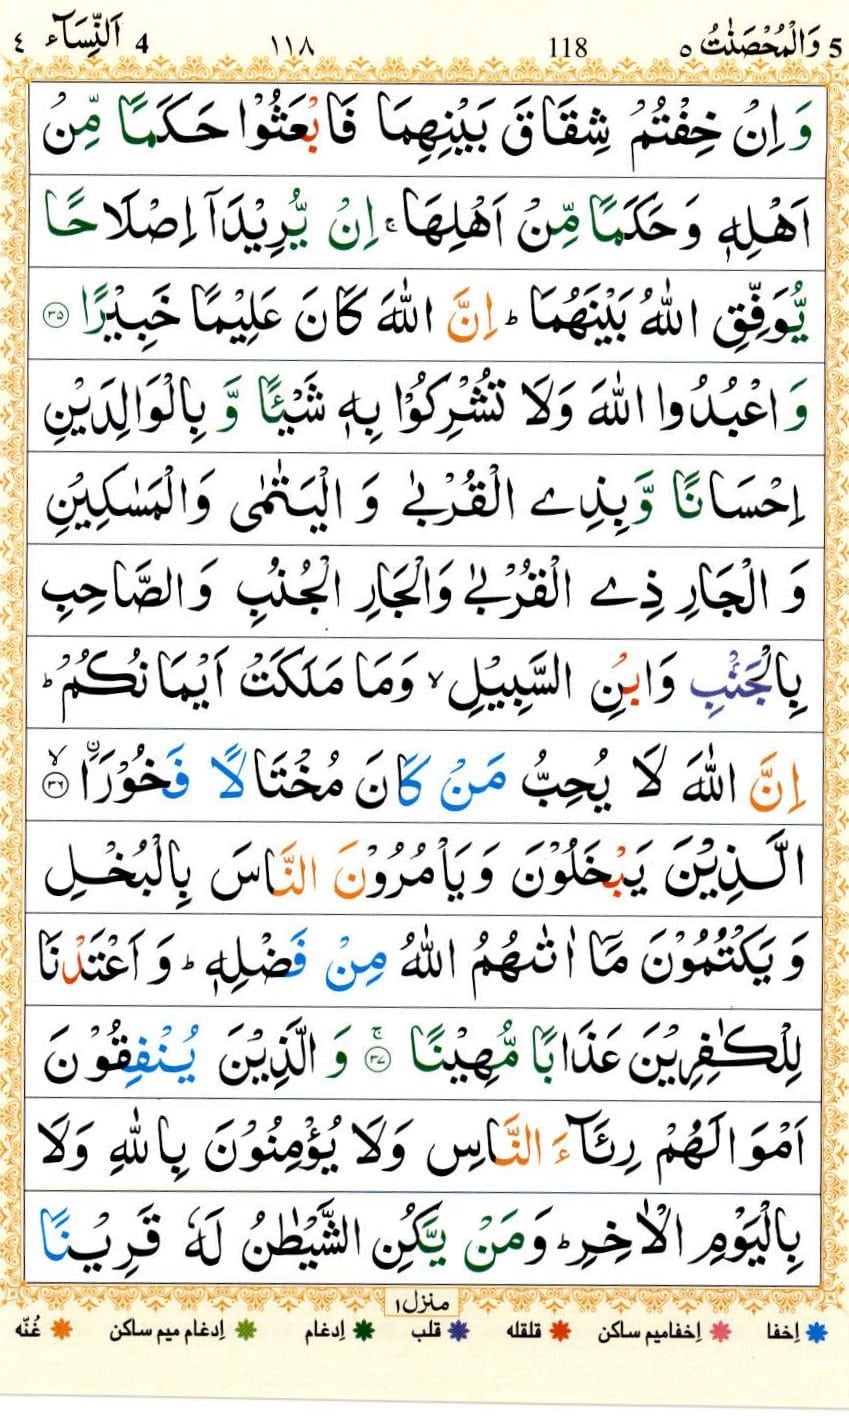 5 وَالْمُحْصَنٰتُ ٥ 118 ١١٨ 4 اَلنِّسَآء ٤
وَ اِنْ خِفْتُمْ شِقَاقَ بَيْنِهِمَا فَابْعَثُوْا حَكَمًا مِّنْ
اَهْلِهٖ وَحَكَمًا مِّنْ اَهْلِهَا ۚ اِنْ يُّرِيْدَاۤ اِصْلَاحًا
يُّوَفِّقِ اللّٰهُ بَيْنَهُمَا ؕ اِنَّ اللّٰهَ كَانَ عَلِيْمًا خَبِيْرًا ﴿۳۵﴾
وَ اعْبُدُوا اللّٰهَ وَلَا تُشْرِكُوْا بِهٖ شَيْـًٔا وَّ بِالْوَالِدَيْنِ
اِحْسَانًا وَّبِذِے الْقُرْبٰے وَ الْيَتٰمٰى وَالْمَسٰكِيْنِ
وَ الْجَارِ ذِے الْقُرْبٰے وَالْجَارِ الْجُنُبِ وَالصَّاحِبِ
بِالْجَنْۢبِ وَابْنِ السَّبِيْلِ ۙ وَمَا مَلَكَتْ اَيْمَانُكُمْ ؕ
اِنَّ اللّٰهَ لَا يُحِبُّ مَنْ كَانَ مُخْتَالًا فَخُوْرَا ۨ ۙ﴿۳۶﴾
الَّذِيْنَ يَبْخَلُوْنَ وَيَاْمُرُوْنَ النَّاسَ بِالْبُخْلِ
وَ يَكْتُمُوْنَ مَاۤ اٰتٰىهُمُ اللّٰهُ مِنْ فَضْلِهٖ ؕ وَ اَعْتَدْنَا
لِلْكٰفِرِيْنَ عَذَابًا مُّهِيْنًا ۚ﴿۳۷﴾ وَ الَّذِيْنَ يُنْفِقُوْنَ
اَمْوَالَهُمْ رِئَآءَ النَّاسِ وَلَا يُؤْمِنُوْنَ بِاللّٰهِ وَلَا
بِالْيَوْمِ الْاٰخِرِ ؕ وَمَنْ يَّكُنِ الشَّيْطٰنُ لَهٗ قَرِيْنًا
منزل ۱
اِخفا اِخفامیم ساکن قلقله قلب اِدغام اِدغام میم ساکن غُنّه